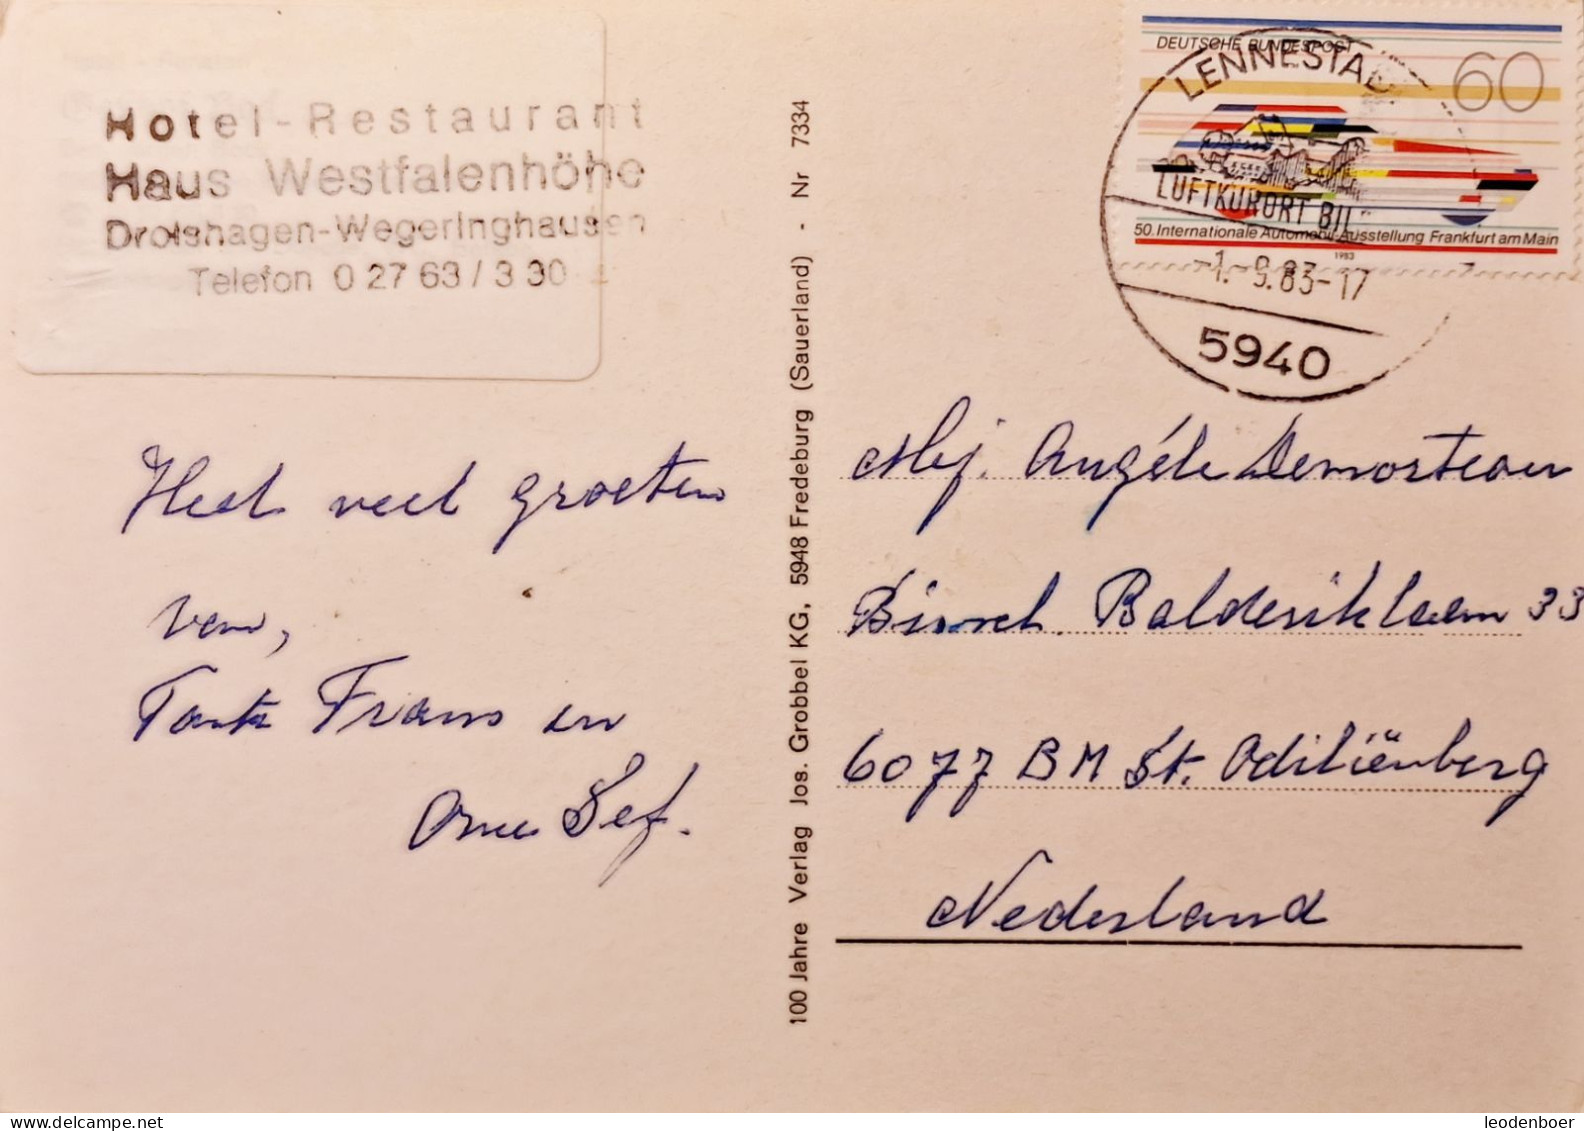 Hotel-Restaurant
Haus Westfalenhöhe
Drolshagen-Wegeringhausen
Telefon 0 27 63 / 3 30
Heel veel groeten
van,
Tante Frans en
Ome Sef.
100 Jahre Verlag Jos. Grobbel KG, 5948 Fredeburg (Sauerland) - Nr 7334
DEUTSCHE BUNDESPOST
60
50. Internationale Automobil-Ausstellung Frankfurt am Main
1983
LENNESTA
LUFTKURORT BIL
-1.-9.83-17
5940
Mej. Angéle Demorteau
Burch. Balderiklaan 33
6077 BM St. Odiliënberg
Nederland
leodenboer